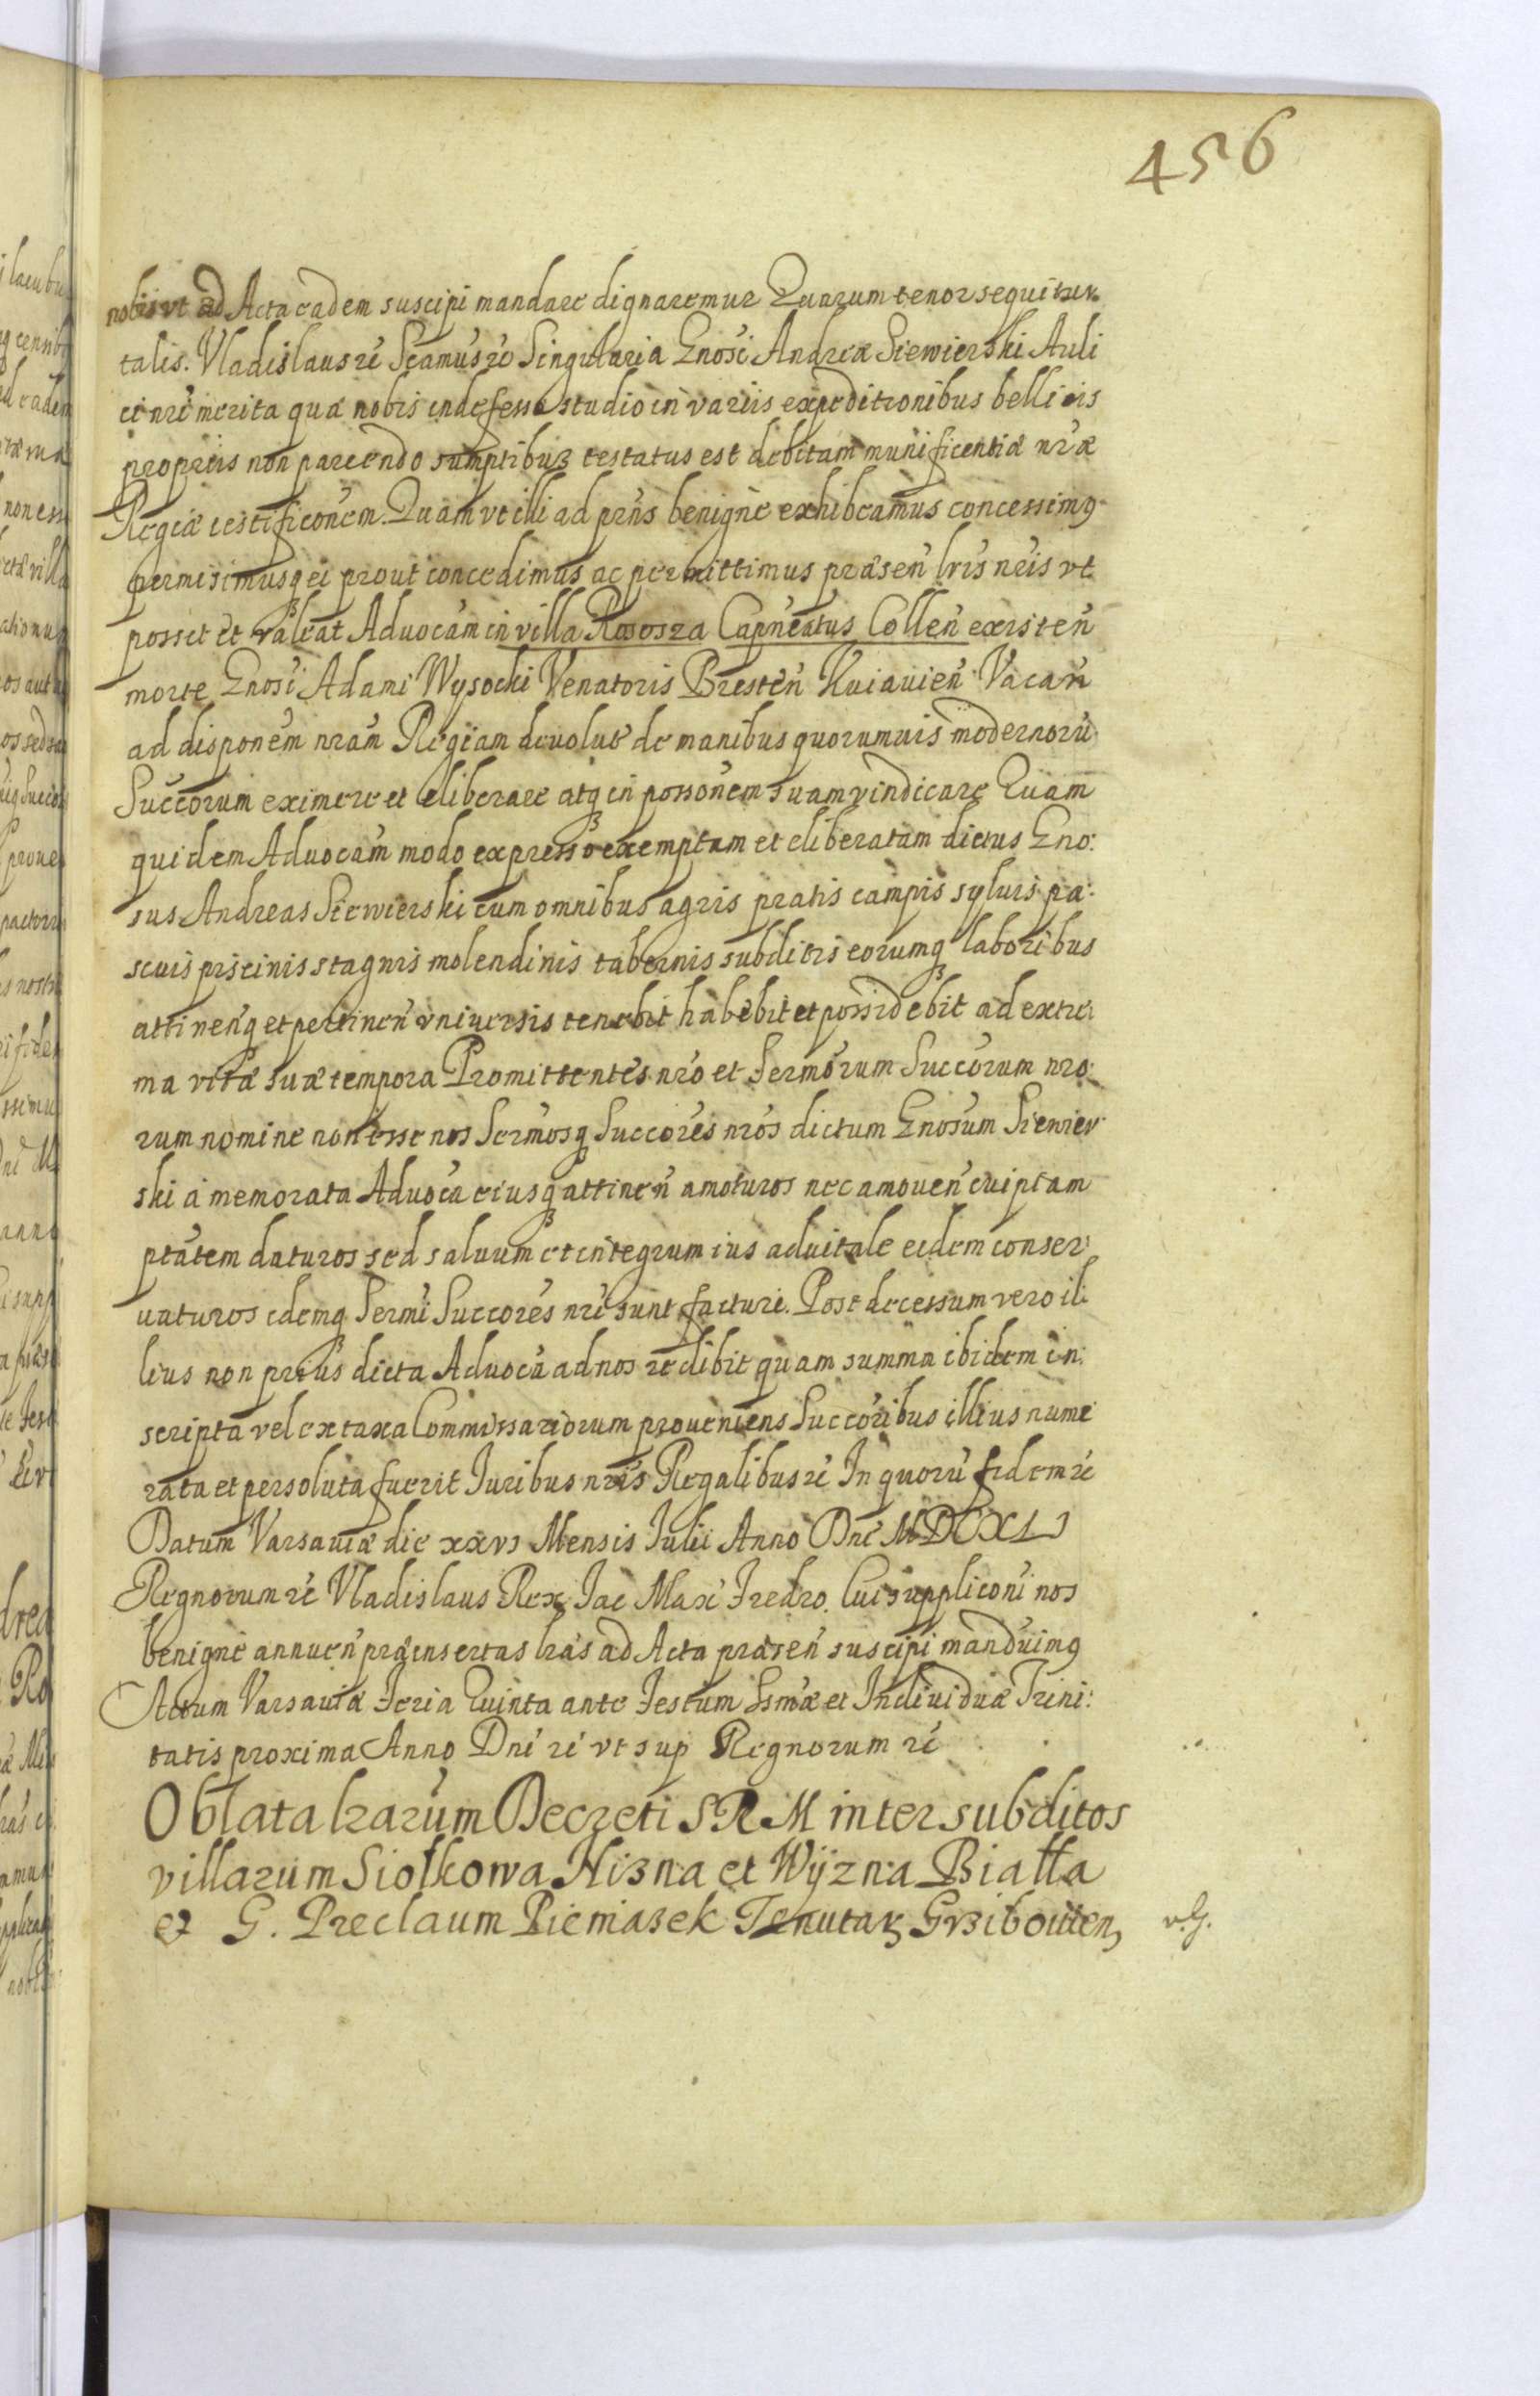 456
nobis vt ad Acta eadem suscipi mandare dignaremur Quarum tenor sequitur
talis. Vladislaus rc̃ Scamus rc̃ Singularia Gnosi Andreæ Siewierski Auli
ci nrĩ merita quæ nobis indefesso studio in variis expeditionibus bellicis
propriis non parcendo sumptibus testatus est debitam munificentiæ nræ
Regiæ testificonem. Quam vt illi ad prñs benigne exhibeamus concessimus
permisimusq ei prout concedimus ac permittimus præsen lris nris vt
posset et valeat Aduocam in villa Rososza Capneatus Collen existen
morte Gnosi Adami Wysocki Venatoris Bresten Kuiauien Vacan
ad disponem nram Regiam deuolut de manibus quorumuis modernorũ
Succorum eximere et eliberare atq in possonem suam vindicare Quam
quidem Aduocam modo expresso exemptam et eliberatam dictus Gno:
sus Andreas Siewierski cum omnibus agris pratis campis syluis pa:
scuis piscinis stagnis molendinis tabernis subditis eorumq laboribus
attinenq et pertinen vniuersis tenebit habebit et possidebit ad extre:
ma vitæ suæ tempora Promittentes nro et Sermorum Succorum nro:
rum nomine non esse nos Sermosq Succores nros dictum Gnosum Siewier
ski a memorata Aduoca eiusq attinen amoturos nec amouen cuipiam
ptatem daturos sed saluum et integrum ius aduitale eidem conser:
uaturos idemq Sermi Succores nri sunt facturi. Post decessum vero il:
lius non prius dicta Aduoca ad nos redibit quam summa ibidem in:
scripta vel ex taxa Commissariorum proueniens Succoribus illius nume
rata et persoluta fuerit Iuribus nris Regalibus rc̃ In quorũ fidem rc̃
Datum Varsauiæ die xxvj Mensis Iulii Anno Dni MDCXLJ
Regnorum rc̃ Vladislaus Rex Iac Max Fredro. Cui suppliconi nos
benigne annuen præinsertas lras ad Acta præsen suscipi manduimus
Actum Varsauiæ Feria Quinta ante Festum Ssmæ et Indiuiduæ Trini:
tatis proxima Anno Dni rc̃ vt sup Regnorum rc̃
Oblata lrarum Decreti SRM inter subditos
villarum Siołkowa Nizna et Wÿzna Biała
et G. Preclaum Pieniazek Tenutar Grzibouien, v. G.